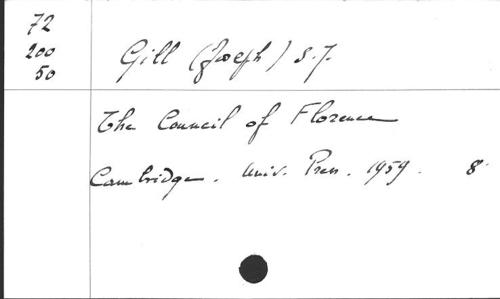 72
200
50
Gill (Joseph) S.J.
The Council of Florence
Cambridge. Univ. Press. 1959. 8°